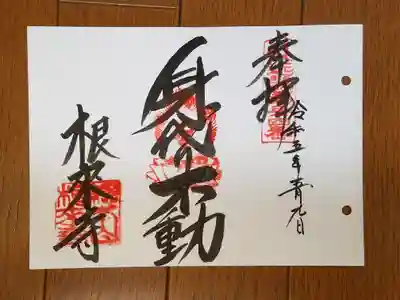 奉拝
令和五年一月九日
身代り不動
根来寺